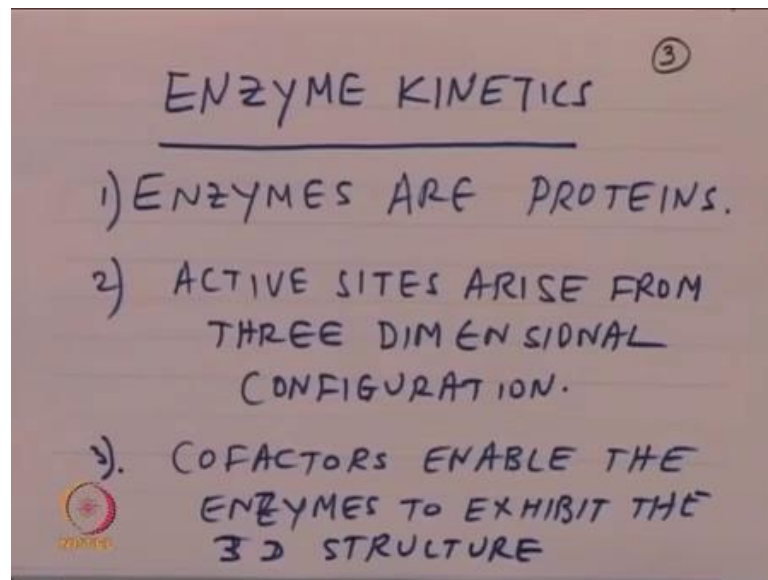 3
ENZYME KINETICS
1) ENZYMES ARE PROTEINS.
2) ACTIVE SITES ARISE FROM
THREE DIMENSIONAL
CONFIGURATION.
3). COFACTORS ENABLE THE
ENZYMES TO EXHIBIT THE
3D STRUCTURE
NPTEL